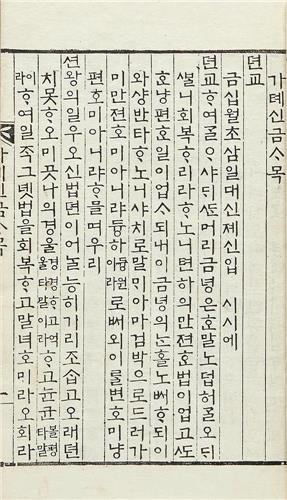 가톄신금ᄉᆞ목
뎐교
금십월초삼일대신졔신입 시시에
뎐교ᄒᆞ여ᄀᆞᆯᄋᆞ샤ᄃᆡ 머리금녕은ᄒᆞᆫ말노덥허ᄀᆞᆯ오ᄃᆡ
ᄲᆞᆯ니회복ᄒᆞ리라ᄒᆞ노니텬하의만젼ᄒᆞᆫ법이업고ᄯᅩ
ᄒᆞᆫ냥편ᄒᆞᆫ일이업ᄉᆞ되내이금녕의ᄂᆞᆫ홀노ᄡᅥᄒᆞ되이
와샹반타ᄒᆞ노니샤치로말미아마겁박으로드러가
미만젼ᄒᆞ미아니랴 로ᄡᅥ외이ᄅᆞᆯ변ᄒᆞ미냥
편ᄒᆞ미아니랴ᄒᆞ믈며우리
션왕의일우오신법뎐이어ᄂᆞᆯ능히기리조ᄎᆞᆸ고오래뎐
치못ᄒᆞ오미ᄭᅳᆺ나의경울 ᄒᆞ고
이라ᄒᆞ여일즉그녯법을회복ᄒᆞ고말녀ᄒᆞ미라오회라